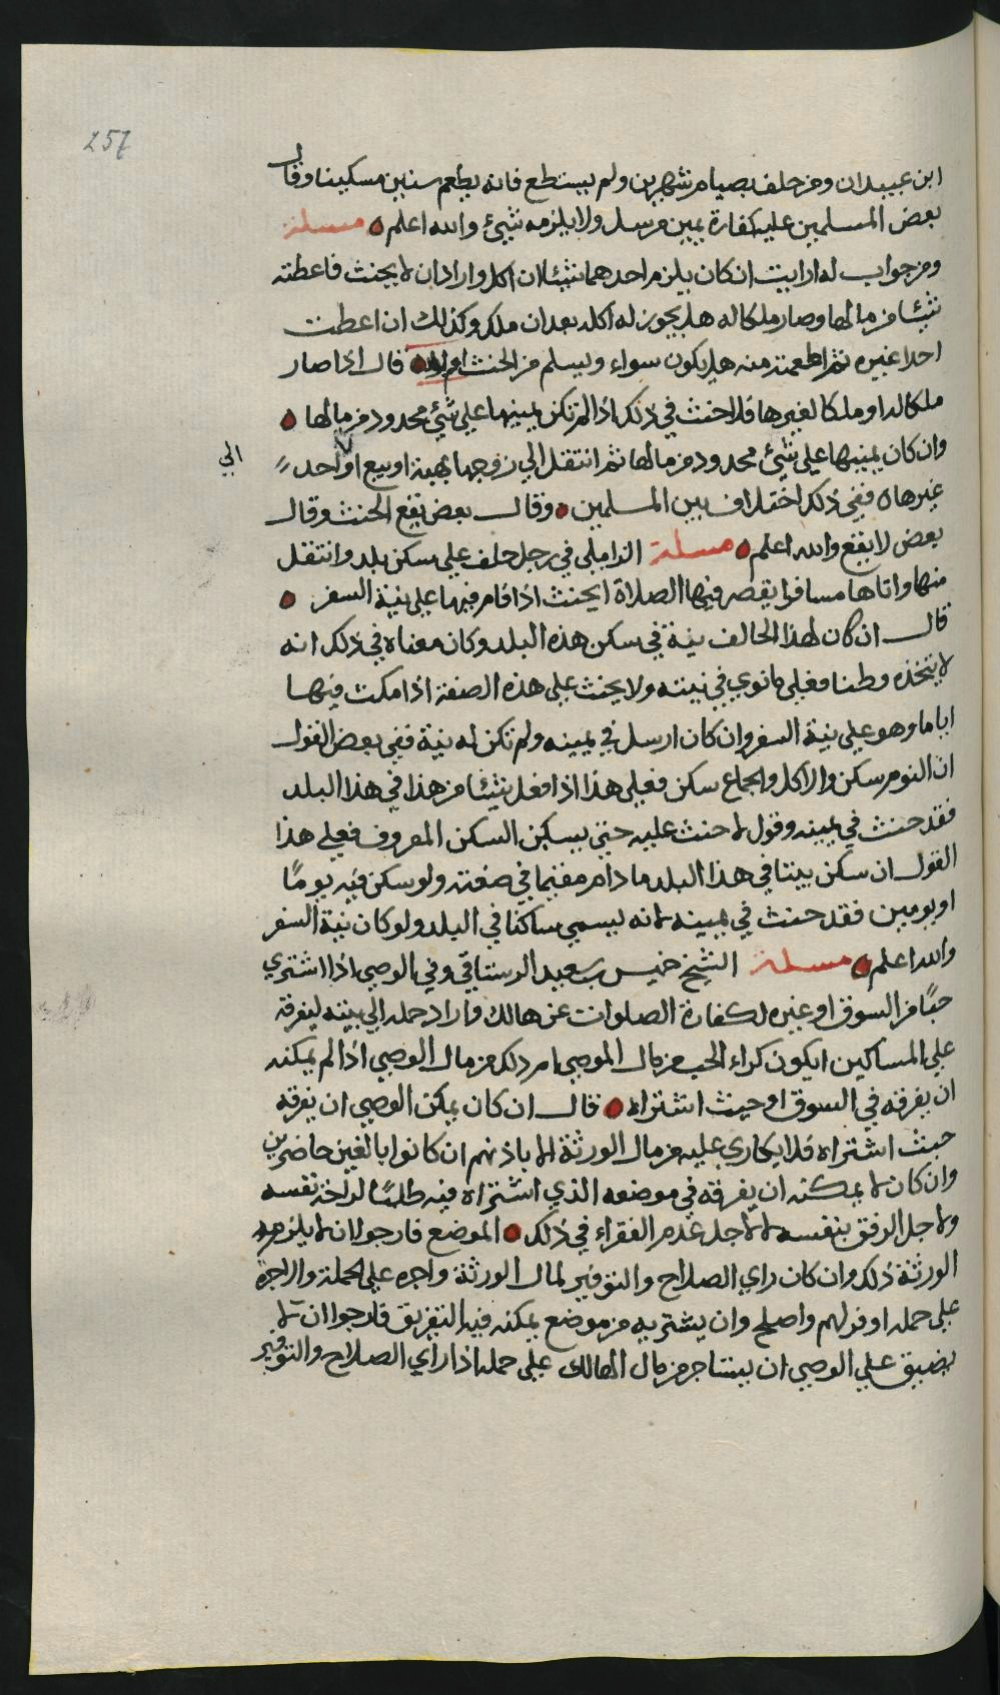 257
ابن عبيدان ومن حلف بصيام شهرين ولم يستطع فانه يطعم ستين مسكينا وقال
بعض المسلمين عليه كفارة يمين مرسل ولا يلزمه شيئ والله اعلم مسلة
ومن جوابه له ارايت ان كان يلزم احدهما شيئا ان اكل واراد ان لا يحنث فاعطته
شيئا من مالها وصار ملكا له هل يجوز له اكله بعد ان ملكه وكذلك ان اعطت
احدا غيره ثم اطعمته منه هل يكون سواء ويسلم من الحنث ام لا قال اذا صار
ملكا له او ملكا لغيرها فلا حنث في ذلك اذا لم تكن يمينها على شئ محدود من مالها
وان كان يمينها علي شيئ محدود من مالها ثم انتقل الي زوجها بهبة او بيع او لاحد الي
غيرها ففي ذلك اختلاف بين المسلمين وقال بعض يقع الحنث وقال
بعض لا يقع والله اعلم مسلة الزاملي في رجل حلف علي سكن بلد وانتقل
منها واتاها مسافرا يقصر فيها الصلاة ايحنث اذا قام فيها علي نية السفر
قال ان كان لهذا الحالف نية في سكن هذه البلد وكان معناه في ذلك انه
لا يتخذه وطنا فعلي ما نوي في نيته ولا يحنث علي هذه الصفة اذا مكث فيها
اياما وهو علي نية السفر وان كان ارسل في يمينه ولم تكن له نية ففي بعض القول
ان النوم سكن والاكل والجماع سكن فعلي هذا اذا فعل شيئا من هذا في هذا البلد
فقد حنث في يمينه وقول لا حنث عليه حتي يسكن السكن المعروف فعلي هذا
القول ان سكن بيتا في هذا البلد ما دام مقيما في صفته ولو سكن فيه يومًا
او يومين فقد حنث في يمينه لانه يسمي ساكنا في البلد ولو كان نية السفر
والله اعلم مسلة الشيخ خميس بن سعيد الرستاقي وفي الوصي اذا اشتري
حبًا من السوق او غيره لكفارة الصلوات عن هالك واراد حمله الي بيته ليفرقه
علي المساكين ايكون كراء الحب من مال الموصي ام ذلك من مال الوصي اذا لم يمكنه
ان يفرقه في السوق او حيث اشتراه قال ان كان يمكن الوصي ان يفرقه
حيث اشتراه فلا يكاري عليه من مال الورثة الا باذنهم ان كانوا بالغين حاضرين
وان كان لا يمكنه ان يفرقه في موضعه الذي اشتراه فيه طلبًا لراحة نفسه
ولاجل الرفق بنفسه لا لاجل عدم الفقراء في ذلك الموضع فارجوا ان لا يلزم
الورثة ذلك وان كان راي الصلاح والتوفير لمال الورثة واجره علي الحملة والاجرة
علي حمله اوفر لهم واصلح وان يشتريه من موضع يمكنه فيه التفريق فارجوا ان لا
يضيق علي الوصي ان يستاجر من مال الهالك علي حمله اذا راي الصلاح والتوفير